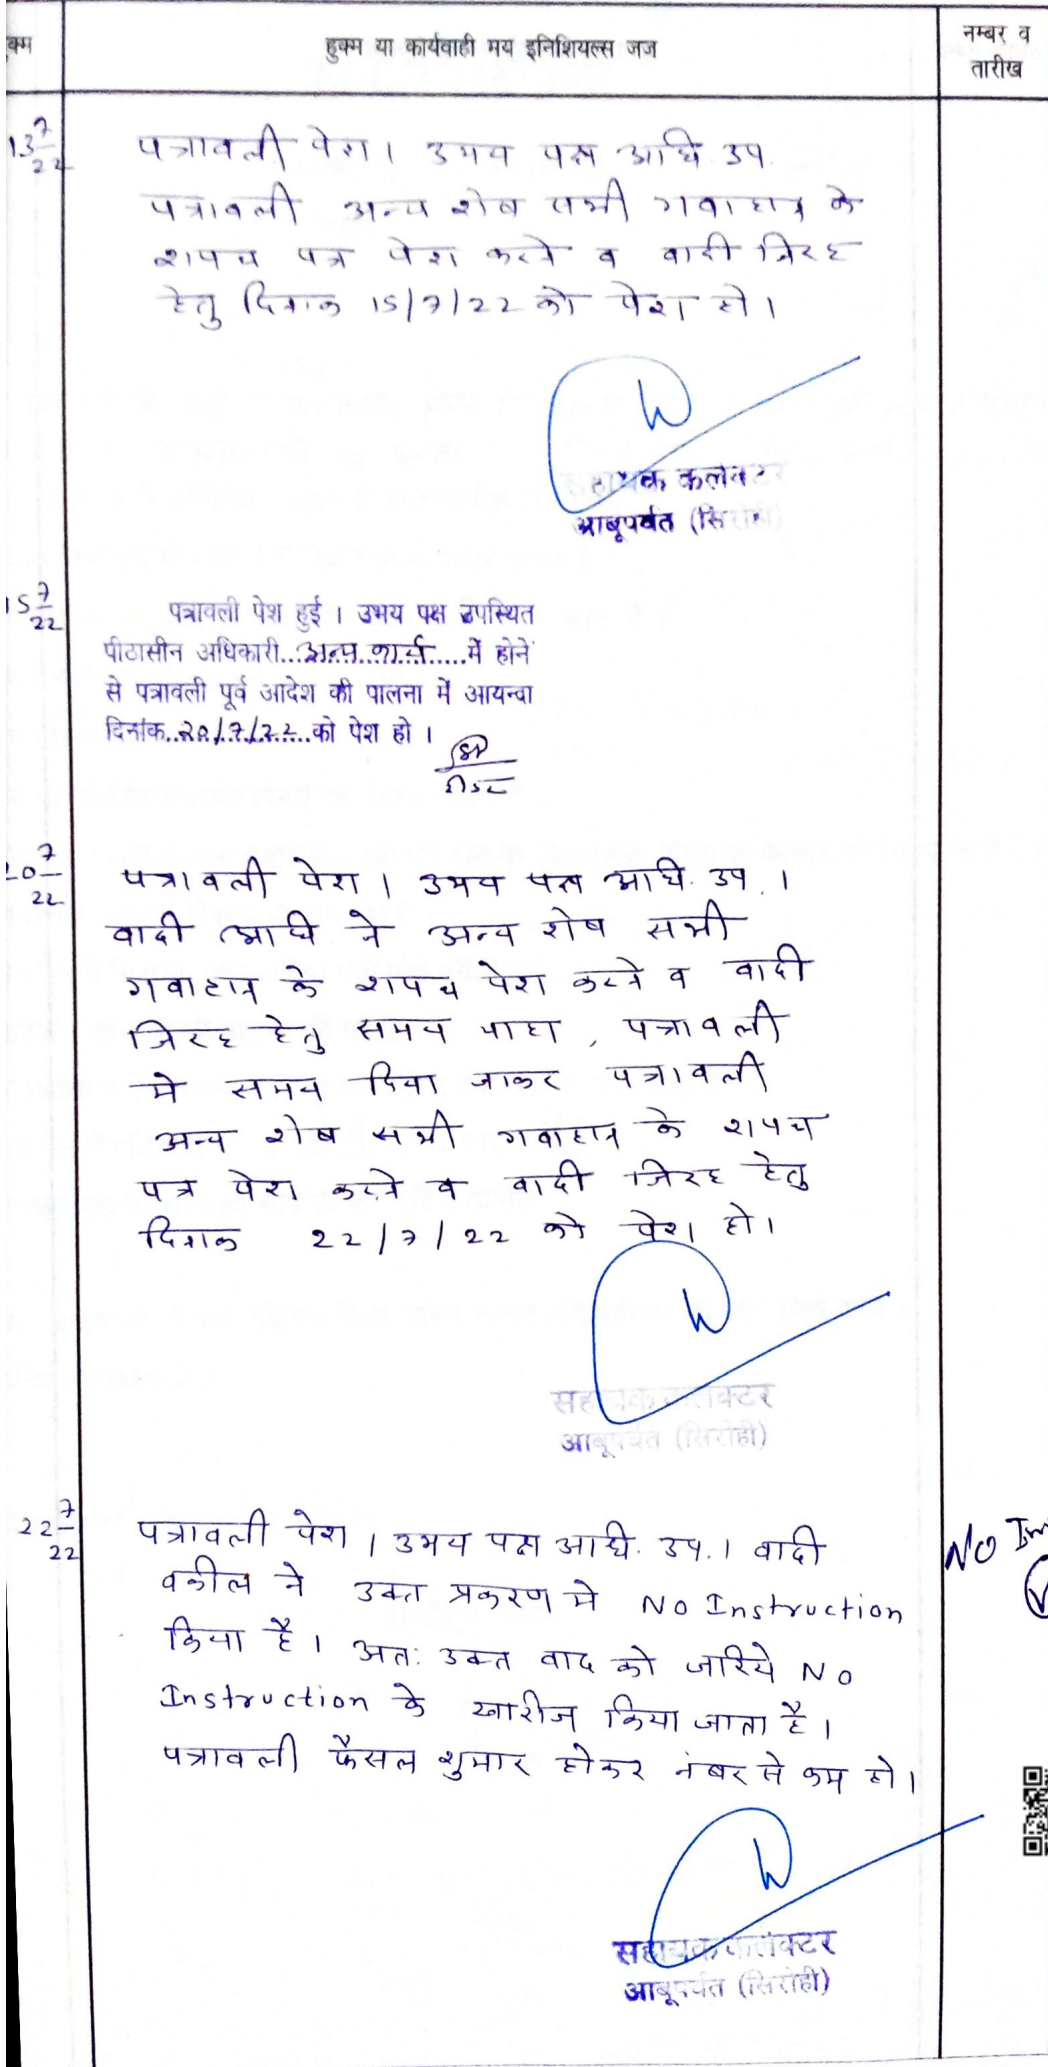 क्म
हुक्म या कार्यवाही मय इनिशियल्स जज
नम्बर व
तारीख
13 7/22
पत्रावली पेश। उभय पक्ष अधि. उप.
पत्रावली अन्य शेष सभी गवाहान के
शपथ पत्र पेश करने व वादी जिरह
हेतु दिनांक 15/7/22 को पेश हो।
सहायक कलक्टर
आबूपर्वत (सिरोही)
15 7/22
पत्रावली पेश हुई। उभय पक्ष उपस्थित
पीठासीन अधिकारी...अन्य कार्य...में होनें
से पत्रावली पूर्व आदेश की पालना में आयन्दा
दिनांक...20/7/22...को पेश हो।
20 7/22
पत्रावली पेश। उभय पक्ष अधि. उप.।
वादी अधि ने अन्य शेष सभी
गवाहान के शपथ पेश करने व वादी
जिरह हेतु समय चाहा, पत्रावली
मे समय दिया जाकर पत्रावली
अन्य शेष सभी गवाहान के शपथ
पत्र पेश करने व वादी जिरह हेतु
दिनांक 22/7/22 को पेश हो।
सहायक कलक्टर
आबूपर्वत (सिरोही)
22 7/22
पत्रावली पेश। उभय पक्ष अधि. उप.। वादी
वकील ने उक्त प्रकरण मे No Instruction
किया है। अत: उक्त वाद को जरिये No
Instruction के खारीज किया जाता है।
पत्रावली फैसल शुमार होकर नंबर से कम हो।
No
सहायक कलक्टर
आबूपर्वत (सिरोही)